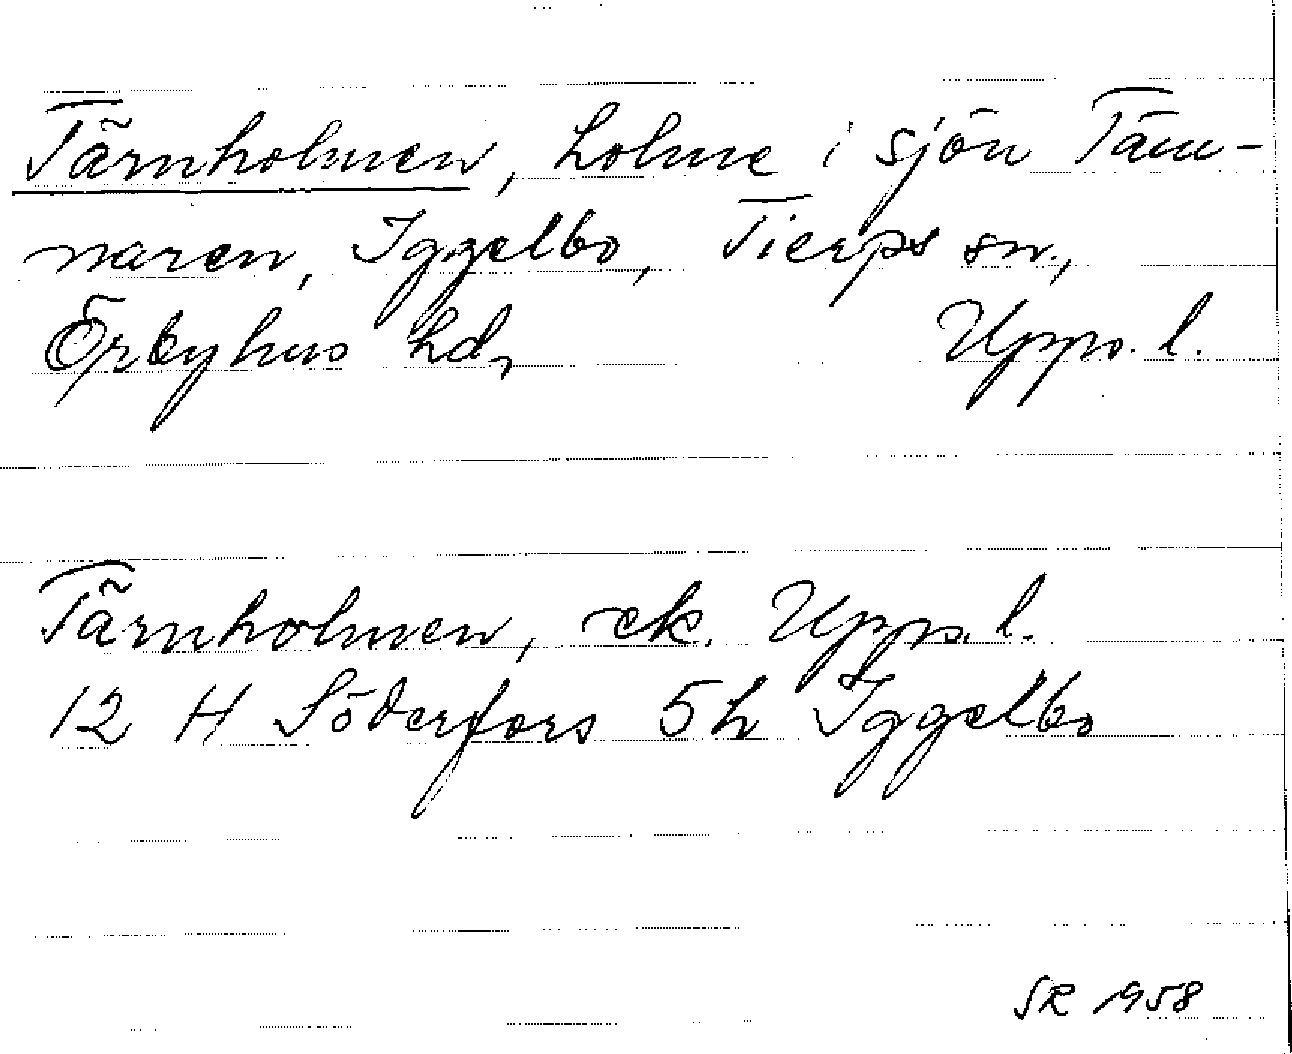 Tärnholmen, holme i sjön Täm-
naren, Iggelbo, Tierps sn.,
Örbyhus hd,     Upps. l.
Tärnholmen, ek. Upps. l.
12 H Söderfors 5h Iggelbo
SR 1958